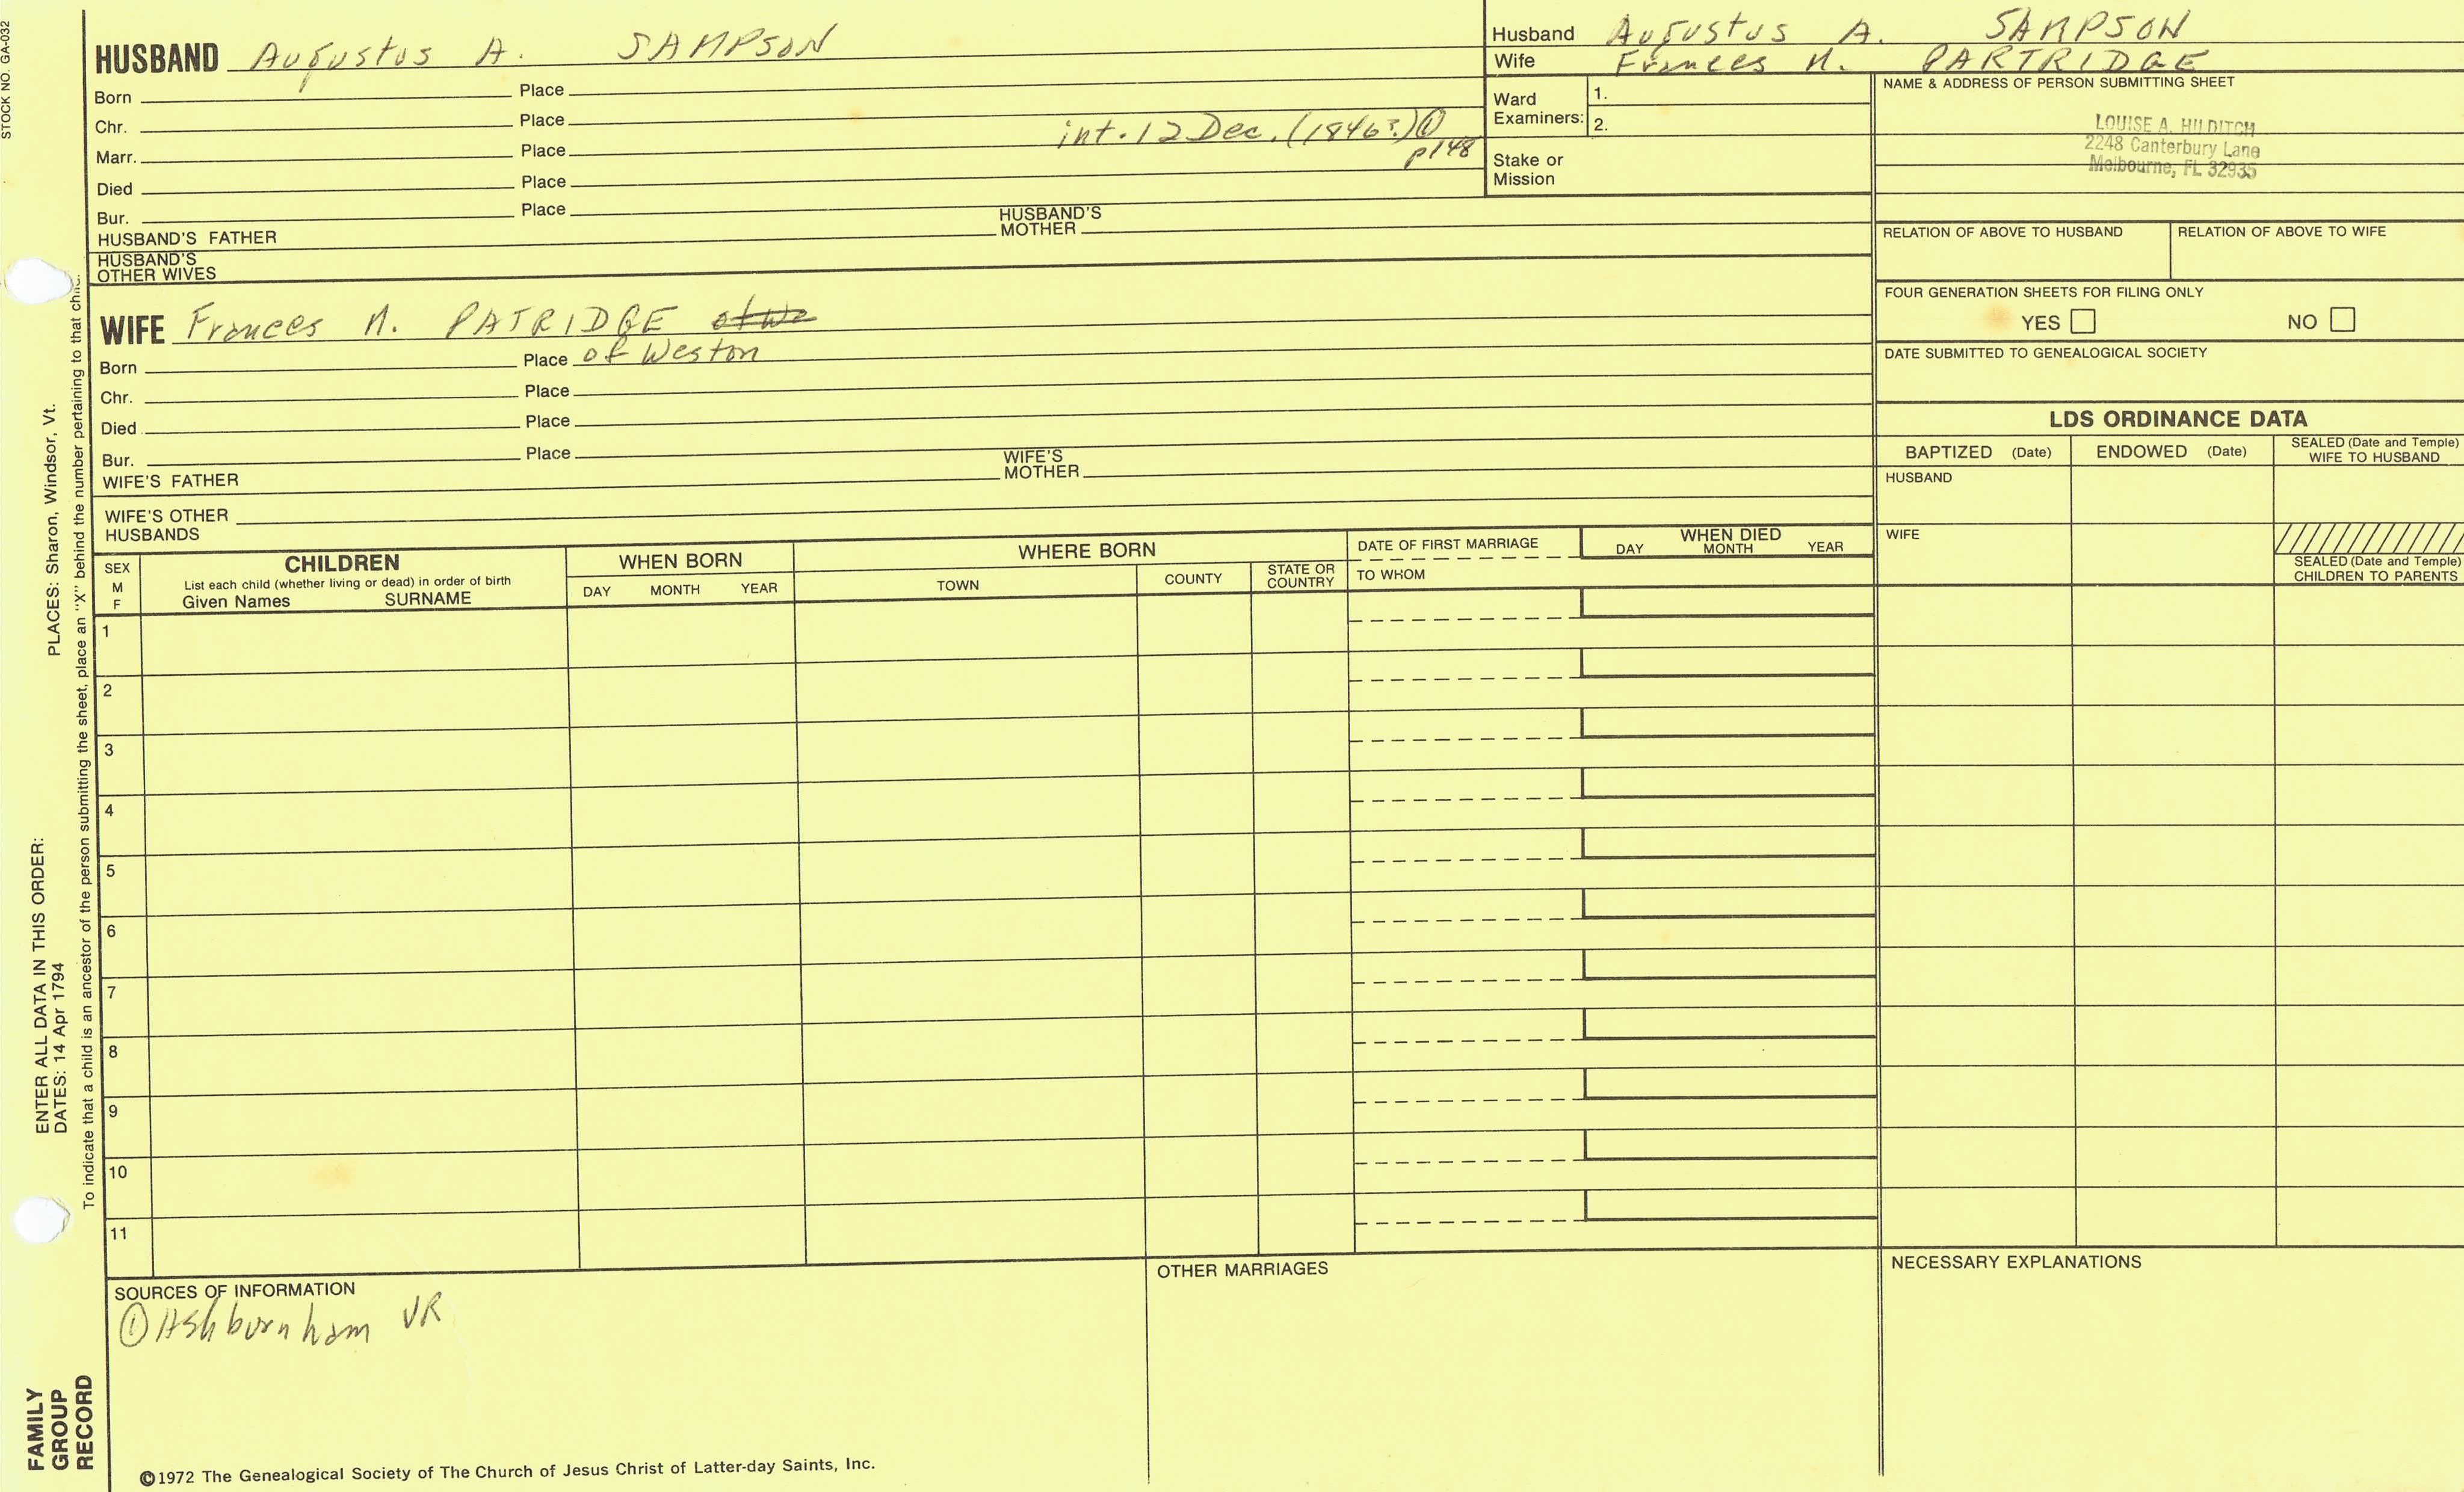 STOCK NO. GA-032
HUSBAND Augustus A. SAMPSON
Born Place
Chr. Place
Marr. Place int. 12 Dec. (1846?) ① p148
Died Place
Bur. Place
HUSBAND'S FATHER HUSBAND'S MOTHER
HUSBAND'S OTHER WIVES
Husband Augustus A. SAMPSON
Wife Frances N. PARTRIDGE
Ward Examiners: 1.
2.
Stake or Mission
NAME & ADDRESS OF PERSON SUBMITTING SHEET
LOUISE A. HILDITCH
2248 Canterbury Lane
Melbourne, FL 32935
RELATION OF ABOVE TO HUSBAND RELATION OF ABOVE TO WIFE
FOUR GENERATION SHEETS FOR FILING ONLY
YES NO
DATE SUBMITTED TO GENEALOGICAL SOCIETY
WIFE Frances N. PATRIDGE
Born Place of Weston
Chr. Place
Died Place
Bur. Place
WIFE'S FATHER WIFE'S MOTHER
WIFE'S OTHER HUSBANDS
LDS ORDINANCE DATA
BAPTIZED (Date) ENDOWED (Date) SEALED (Date and Temple) WIFE TO HUSBAND
HUSBAND
WIFE
SEALED (Date and Temple) CHILDREN TO PARENTS
SEX M F
CHILDREN
List each child (whether living or dead) in order of birth
Given Names SURNAME
WHEN BORN
DAY MONTH YEAR
WHERE BORN
TOWN COUNTY STATE OR COUNTRY
DATE OF FIRST MARRIAGE
TO WHOM
WHEN DIED
DAY MONTH YEAR
1
2
3
4
5
6
7
8
9
10
11
SOURCES OF INFORMATION
① Ashburnham VR
OTHER MARRIAGES
NECESSARY EXPLANATIONS
©1972 The Genealogical Society of The Church of Jesus Christ of Latter-day Saints, Inc.
FAMILY GROUP RECORD
ENTER ALL DATA IN THIS ORDER:
DATES: 14 Apr 1794
PLACES: Sharon, Windsor, Vt.
To indicate that a child is an ancestor of the person submitting the sheet, place an "X" behind the number pertaining to that child.